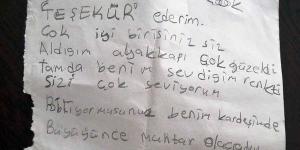 TEŞEKÜR ederim.
Çok iyi birisiniz siz
Aldıgım ayakkapı çok güzeldi
tamda benim sevdigim renkti
sizi çok seviyorum
Biliyormusunuz benim kardeşimde
Büyüyünce muhtar olacakmış